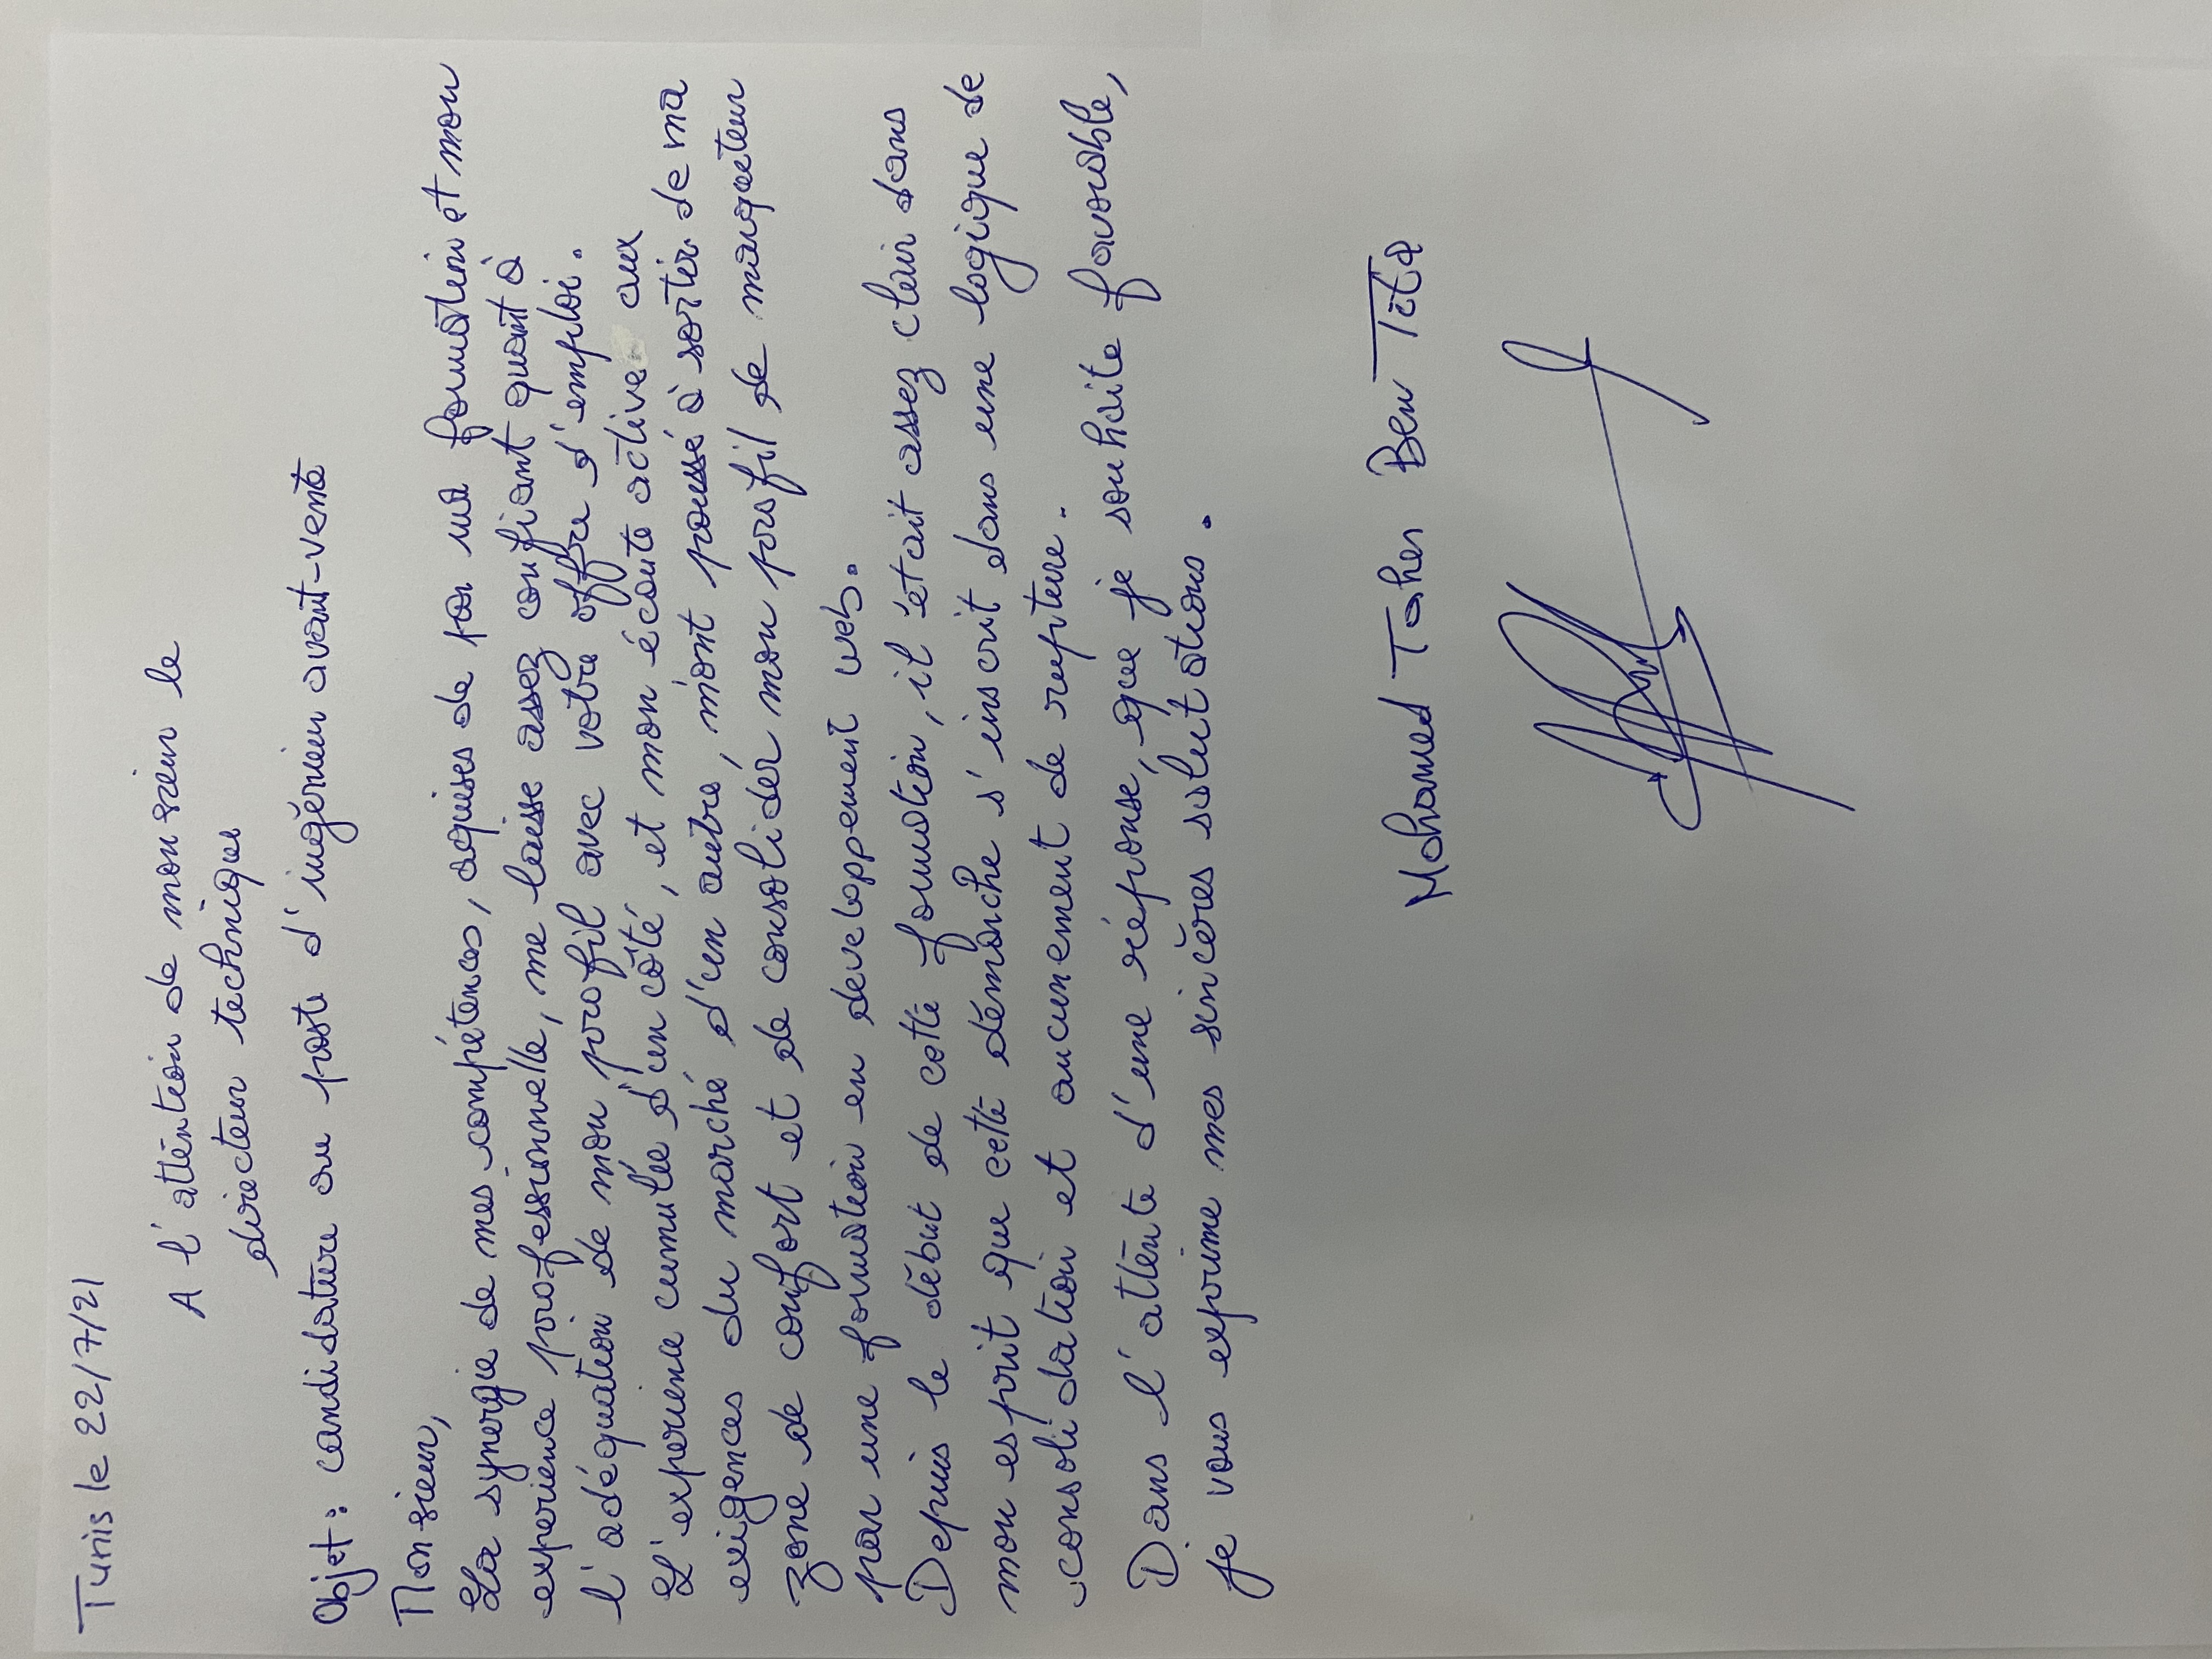 Tunis le 22/7/21
A l'attention de monsieur le
directeur technique
Objet : candidature au poste d'ingénieur avant-vente
Monsieur,
La synergie de mes compétences, aquises de par ma formation et mon
experience professionnelle, me laisse assez confiant quant à
l'adéquation de mon profil avec votre offre d'emploi.
L'experience cumulée d'un côté, et mon écoute active aux
exigences du marché d'un autre, m'ont poussé à sortir de ma
zone de confort et de consolider mon profil de marqueteur
par une formation en developpement web.
Depuis le début de cette formation, il était assez clair dans
mon esprit que cette démarche s'inscrit dans une logique de
consolidation et aucunement de rupture.
Dans l'attente d'une réponse, que je souhaite favorable,
je vous exprime mes sincères salutations.
Mohamed Taher Ben Tita